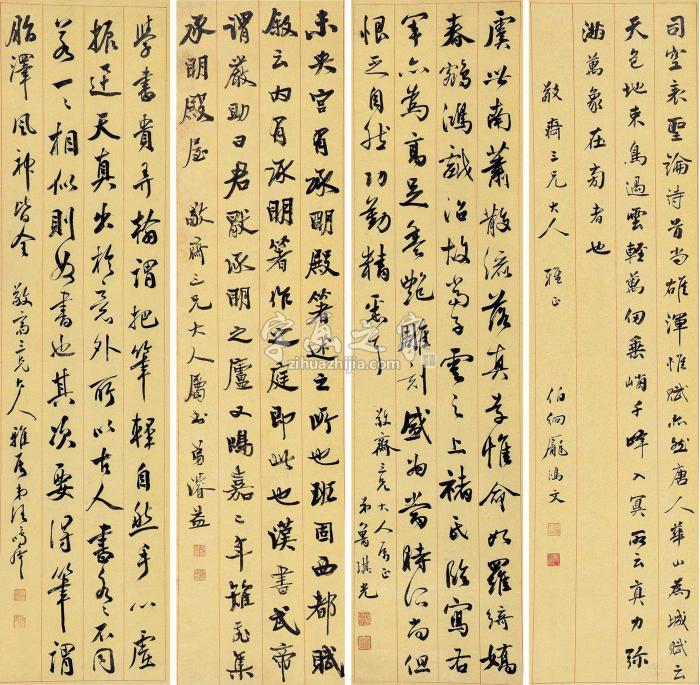 司空表聖論詩首尚雄渾惟賦亦然唐人華山為城賦云
天包地束鳥過雲輕萬仞垂峭千峰入冥所云真力弥
滿萬象在旁者也
敬齋三兄大人 雅正
伯絅龐鴻文
虞世南蕭散流落真草惟命如羅綺嬌
春鵷鴻戲沼故當子雲之上褚氏臨寫右
軍亦為高足豊艷雕刻盛為當時所尚但
恨乏自然功勤精悉耳
敬齋三兄大人屬正
弟魯琪光
未央宮有承明殿著述之所也班固西都賦
敘云内有承明著作之庭即此也漢書武帝
謂嚴助曰君厭承明之廬又鴻嘉二年雉飛集
承明殿屋 敬齋三兄大人屬書 弟濬益
學書貴弄翰謂把筆輕自然手心虛
振迅天真出於意外所以古人書各各不同
若一一相似則奴書也其次要得筆謂
脂澤風神皆全 敬齋三兄大人雅屬
字画之家
zihuazhijia.com